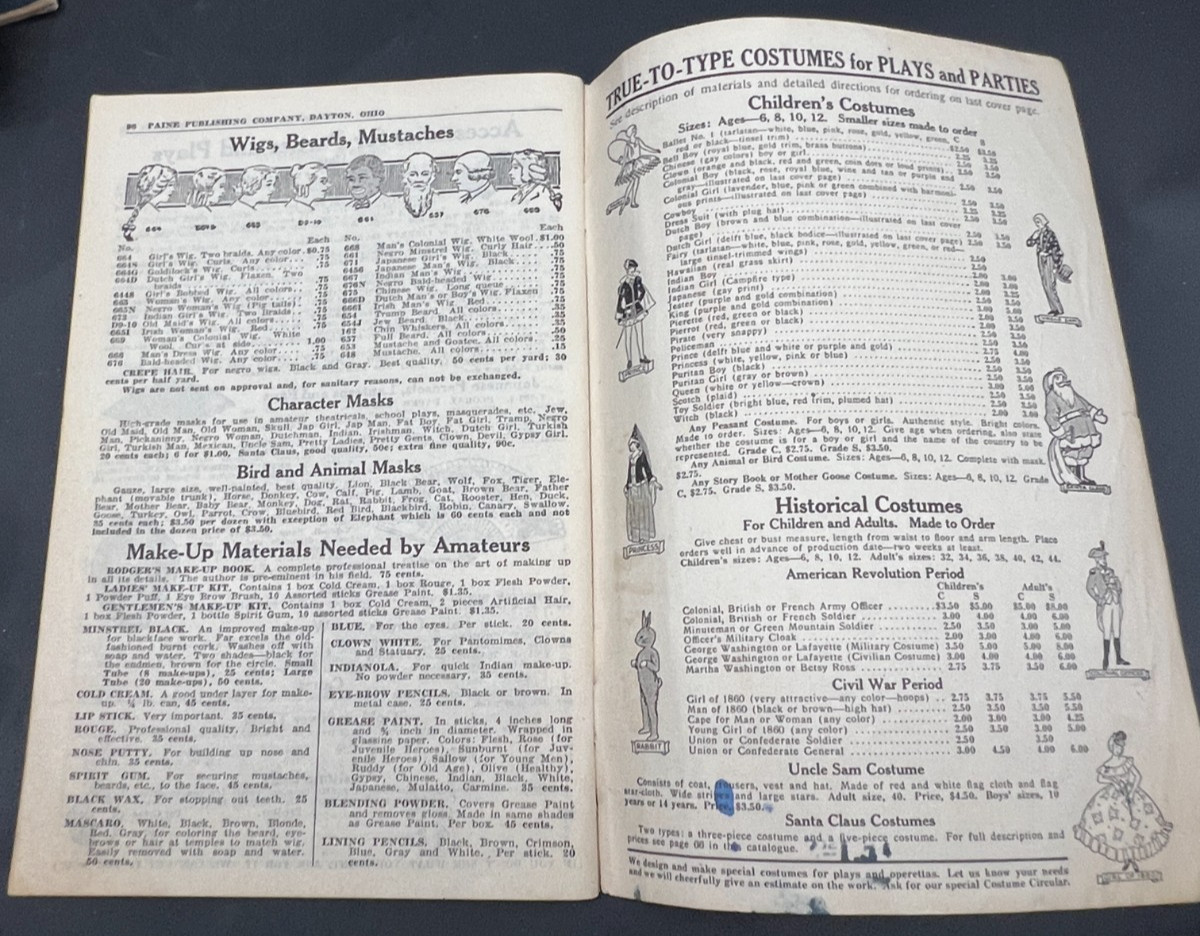 96 PAINE PUBLISHING COMPANY, DAYTON, OHIO
Wigs, Beards, Mustaches
664 665 D9-10 661 657 676 669
No. Each
664 Girl's Wig. Two braids. Any color $0.75
664N Girl's Wig. Curls. Any color .75
664G Goldilock's Wig. Curls .75
664D Dutch Girl's Wig. Flaxen. Two
braids .75
644B Girl's Bobbed Wig. All colors .75
665 Woman's Wig. Any color .75
665N Negro Woman's Wig (Pig tails) .75
672 Indian Girl's Wig. Two Braids .75
D9-10 Old Maid's Wig. All colors .75
665I Irish Woman's Wig. Red .75
669 Woman's Colonial Wig. White
Wool. Curls at side 1.00
666 Man's Dress Wig. Any color .75
676 Bald-headed Wig. Any color .75
No. Each
668 Man's Colonial Wig. White Wool. $1.00
661 Negro Minstrel Wig. Curly Hair .50
671 Japanese Girl's Wig. Black .75
645G Japanese Man's Wig. Black .75
667 Indian Man's Wig .75
676N Negro Bald-headed Wig .75
675 Chinese Wig. Long queue .75
666D Dutch Man's or Boy's Wig. Flaxen .75
666I Irish Man's Wig. Red .75
654 Tramp Beard. All colors .35
654J Jew Beard. Black .35
162 Chin Whiskers. All colors .35
657 Full Beard. All colors .50
653 Mustache and Goatee. All colors .25
648 Mustache. All colors .15
CREPE HAIR. For negro wigs. Black and Gray. Best quality, 50 cents per yard; 30
cents per half yard.
Wigs are not sent on approval and, for sanitary reasons, can not be exchanged.
Character Masks
High-grade masks for use in amateur theatricals, school plays, masquerades, etc. Jew,
Old Maid, Old Man, Old Woman, Skull, Jap Girl, Jap Man, Fat Boy, Fat Girl, Tramp, Negro
Man, Pickaninny, Negro Woman, Dutchman, Indian, Irishman, Witch, Dutch Girl, Turkish
Girl, Turkish Man, Mexican, Uncle Sam, Pretty Ladies, Pretty Gents, Clown, Devil, Gypsy Girl.
20 cents each; 6 for $1.00. Santa Claus, good quality, 50c; extra fine quality, 90c.
Bird and Animal Masks
Gauze, large size, well-painted, best quality. Lion, Black Bear, Wolf, Fox, Tiger, Ele-
phant (movable trunk), Horse, Donkey, Cow, Calf, Pig, Lamb, Goat, Brown Bear, Father
Bear, Mother Bear, Baby Bear, Monkey, Dog, Rat, Rabbit, Frog, Cat, Rooster, Hen, Duck,
Goose, Turkey, Owl, Parrot, Crow, Bluebird, Red Bird, Blackbird, Robin, Canary, Swallow,
35 cents each; $3.50 per dozen with exception of Elephant which is 60 cents each and not
included in the dozen price of $3.50.
Make-Up Materials Needed by Amateurs
RODGER'S MAKE-UP BOOK. A complete professional treatise on the art of making up
in all its details. The author is pre-eminent in his field. 75 cents.
LADIES' MAKE-UP KIT. Contains 1 box Cold Cream, 1 box Rouge, 1 box Flesh Powder,
1 Powder Puff, 1 Eye Brow Brush, 10 Assorted sticks Grease Paint. $1.35.
GENTLEMEN'S MAKE-UP KIT. Contains 1 box Cold Cream, 2 pieces Artificial Hair,
1 box Flesh Powder, 1 bottle Spirit Gum, 10 assorted sticks Grease Paint. $1.35.
MINSTREL BLACK. An improved make-up
for blackface work. Far excels the old-
fashioned burnt cork. Washes off with
soap and water. Two shades—black for
the endmen, brown for the circle. Small
Tube (8 make-ups), 25 cents; Large
Tube (20 make-ups), 50 cents.
COLD CREAM. A good under layer for make-
up. ½ lb. can, 45 cents.
LIP STICK. Very important. 25 cents.
ROUGE. Professional quality. Bright and
effective. 35 cents.
NOSE PUTTY. For building up nose and
chin. 35 cents.
SPIRIT GUM. For securing mustaches,
beards, etc., to the face. 45 cents.
BLACK WAX. For stopping out teeth. 25
cents.
MASCARO. White, Black, Brown, Blonde,
Red, Gray, for coloring the beard, eye-
brows or hair at temples to match wig.
Easily removed with soap and water.
50 cents.
BLUE. For the eyes. Per stick. 20 cents.
CLOWN WHITE. For Pantomimes, Clowns
and Statuary. 25 cents.
INDIANOLA. For quick Indian make-up.
No powder necessary. 35 cents.
EYE-BROW PENCILS. Black or brown. In
metal case. 25 cents.
GREASE PAINT. In sticks, 4 inches long
and ¾ inch in diameter. Wrapped in
glassine paper. Colors: Flesh, Rose (for
Juvenile Heroes), Sunburnt (for Juv-
enile Heroes), Sallow (for Young Men),
Ruddy (for Old Age), Olive (Healthy),
Gypsy, Chinese, Indian, Black, White,
Japanese, Mulatto, Carmine. 35 cents.
BLENDING POWDER. Covers Grease Paint
and removes gloss. Made in same shades
as Grease Paint. Per box. 45 cents.
LINING PENCILS. Black, Brown, Crimson,
Blue, Gray and White. Per stick. 20
cents.
TRUE-TO-TYPE COSTUMES for PLAYS and PARTIES
See description of materials and detailed directions for ordering on last cover page.
Children's Costumes
Sizes: Ages—6, 8, 10, 12. Smaller sizes made to order
Ballet No. 1 (tarlatan—white, blue, pink, rose, gold, yellow, green, C S
red or black—tinsel trim) $2.50 $3.50
Bell Boy (royal blue, gold trim, brass buttons)
Chinese (gay colors) boy or girl
Clown (orange and black, red and green, coin dots or loud prints)
Colonial Boy (black, rose, royal blue, wine and tan or purple and
gray—illustrated on last cover page) 2.50 3.50
Colonial Girl (lavender, blue, pink or green combined with harmoni-
ous prints—illustrated on last cover page)
Cowboy
Dress Suit (with plug hat)
Dutch Boy (brown and blue combination—illustrated on last cover
page)
Dutch Girl (delft blue, black bodice—illustrated on last cover page)
Fairy (tarlatan—white, blue, pink, rose, gold, yellow, green, or red—
large tinsel-trimmed wings)
Hawaiian (real grass skirt)
Indian Boy
Indian Girl (Campfire type)
Japanese (gay print)
Jester (purple and gold combination)
King (purple and gold combination)
Pierette (red, green or black)
Pierrot (red, green or black)
Pirate (very snappy)
Policeman
Prince (delft blue and white or purple and gold)
Princess (white, yellow, pink or blue)
Puritan Boy (black)
Puritan Girl (gray or brown)
Queen (white or yellow—crown)
Scotch (plaid)
Toy Soldier (bright blue, red trim, plumed hat)
Witch (black) 2.00 3.00
Any Peasant Costume. For boys or girls. Authentic style. Bright colors.
Made to order. Sizes: Ages—6, 8, 10, 12. Give age when ordering, also state
whether the costume is for a boy or girl and the name of the country to be
represented. Grade C, $2.75. Grade S, $3.50.
Any Animal or Bird Costume. Sizes: Ages—6, 8, 10, 12. Complete with mask.
$2.75.
Any Story Book or Mother Goose Costume. Sizes: Ages—6, 8, 10, 12. Grade
C, $2.75. Grade S, $3.50.
PRINCESS
RABBIT
Historical Costumes
For Children and Adults. Made to Order
Give chest or bust measure, length from waist to floor and arm length. Place
orders well in advance of production date—two weeks at least.
Children's sizes: Ages—6, 8, 10, 12. Adult's sizes: 32, 34, 36, 38, 40, 42, 44.
American Revolution Period
Children's Adult's
C S C S
Colonial, British or French Army Officer $3.50 $5.00 $5.00 $8.00
Colonial, British or French Soldier 3.00 4.00 4.00 6.00
Minuteman or Green Mountain Soldier 2.50 3.50 3.00 5.00
Officer's Military Cloak 2.00 3.00 4.00 6.00
George Washington or Lafayette (Military Costume) 3.50 5.00 5.00 8.00
George Washington or Lafayette (Civilian Costume) 3.00 4.00 4.00 6.00
Martha Washington or Betsy Ross 2.75 3.75 3.50 6.00
Civil War Period
Girl of 1860 (very attractive—any color—hoops) 2.75 3.75 3.75 5.50
Man of 1860 (black or brown—high hat) 2.50 3.50 3.50 5.50
Cape for Man or Woman (any color) 2.00 3.00 3.00 4.25
Young Girl of 1860 (any color) 2.50 3.50 3.00 5.00
Union or Confederate Soldier 2.50 3.50
Union or Confederate General 3.00 4.50 4.00 6.00
Uncle Sam Costume
Consists of coat, trousers, vest and hat. Made of red and white flag cloth and flag
star-cloth. Wide stripes and large stars. Adult size, 40. Price, $4.50. Boys' sizes, 10
years or 14 years. Price, $3.50.
Santa Claus Costumes
Two types: a three-piece costume and a five-piece costume. For full description and
prices see page 68 in this catalogue.
We design and make special costumes for plays and operettas. Let us know your needs
and we will cheerfully give an estimate on the work. Ask for our special Costume Circular.
GIRL OF 1860